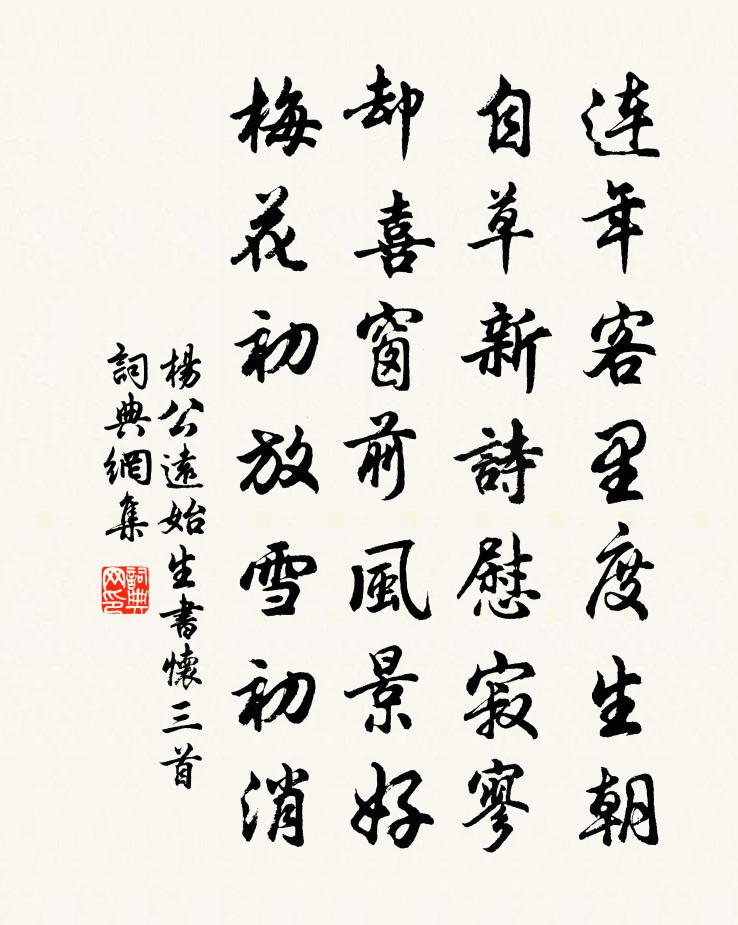 連年客里度生朝
自草新詩慰寂寥
却喜窗前風景好
梅花初放雪初消
楊公遠始生書懷三首
詞典網集
詞典网印